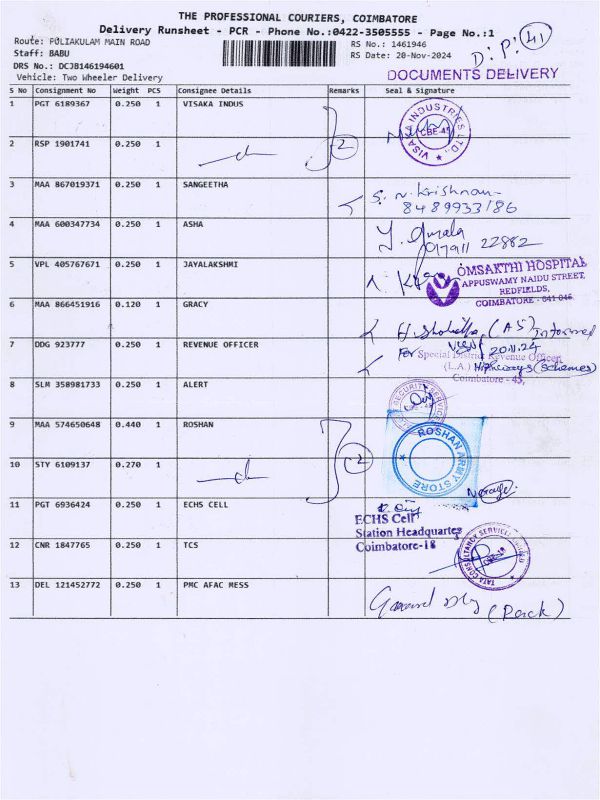 THE PROFESSIONAL COURIERS, COIMBATORE
Delivery Runsheet - PCR - Phone No.:0422-3505555 - Page No.:1
Route: PULIAKULAM MAIN ROAD
RS No.: 1461946
D.P. 41
Staff: BABU
RS Date: 20-Nov-2024
DRS No.: DCJB146194601
DOCUMENTS DELIVERY
Vehicle: Two Wheeler Delivery
S No Consignment No Weight PCS Consignee Details Remarks Seal & Signature
1 PGT 6189367 0.250 1 VISAKA INDUS
VISAKA INDUSTRIES LTD., CBE-45
2 RSP 1901741 0.250 1
2
3 MAA 867019371 0.250 1 SANGEETHA
S. N. Krishnan
8489933186
4 MAA 600347734 0.250 1 ASHA
22882
5 VPL 405767671 0.250 1 JAYALAKSHMI
OMSAKTHI HOSPITAL
APPUSWAMY NAIDU STREET,
REDFIELDS,
COIMBATORE - 641 046
6 MAA 866451916 0.120 1 GRACY
7 DDG 923777 0.250 1 REVENUE OFFICER
20.11.24
For Special District Revenue Officer
(L.A.) Highways (Schemes)
Coimbatore - 45,
8 SLM 358981733 0.250 1 ALERT
SECURITY SERVICE
9 MAA 574650648 0.440 1 ROSHAN
ROSHAN ARMY STORE
10 STY 6109137 0.270 1
2
11 PGT 6936424 0.250 1 ECHS CELL
ECHS Cell
Station Headquarter
Coimbatore-18
12 CNR 1847765 0.250 1 TCS
TATA CONSULTANCY SERVICES LIMITED
13 DEL 121452772 0.250 1 PMC AFAC MESS